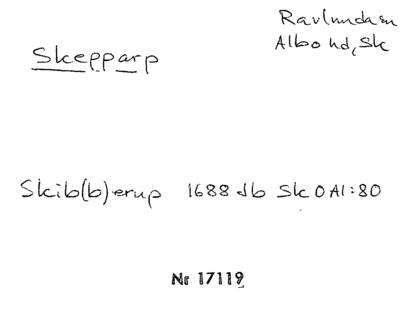 Ravlunda sn
Albo hd, Sk
Skepparp
Skib(b)erup 1688 Jb SkOAl:80
Nr 17119